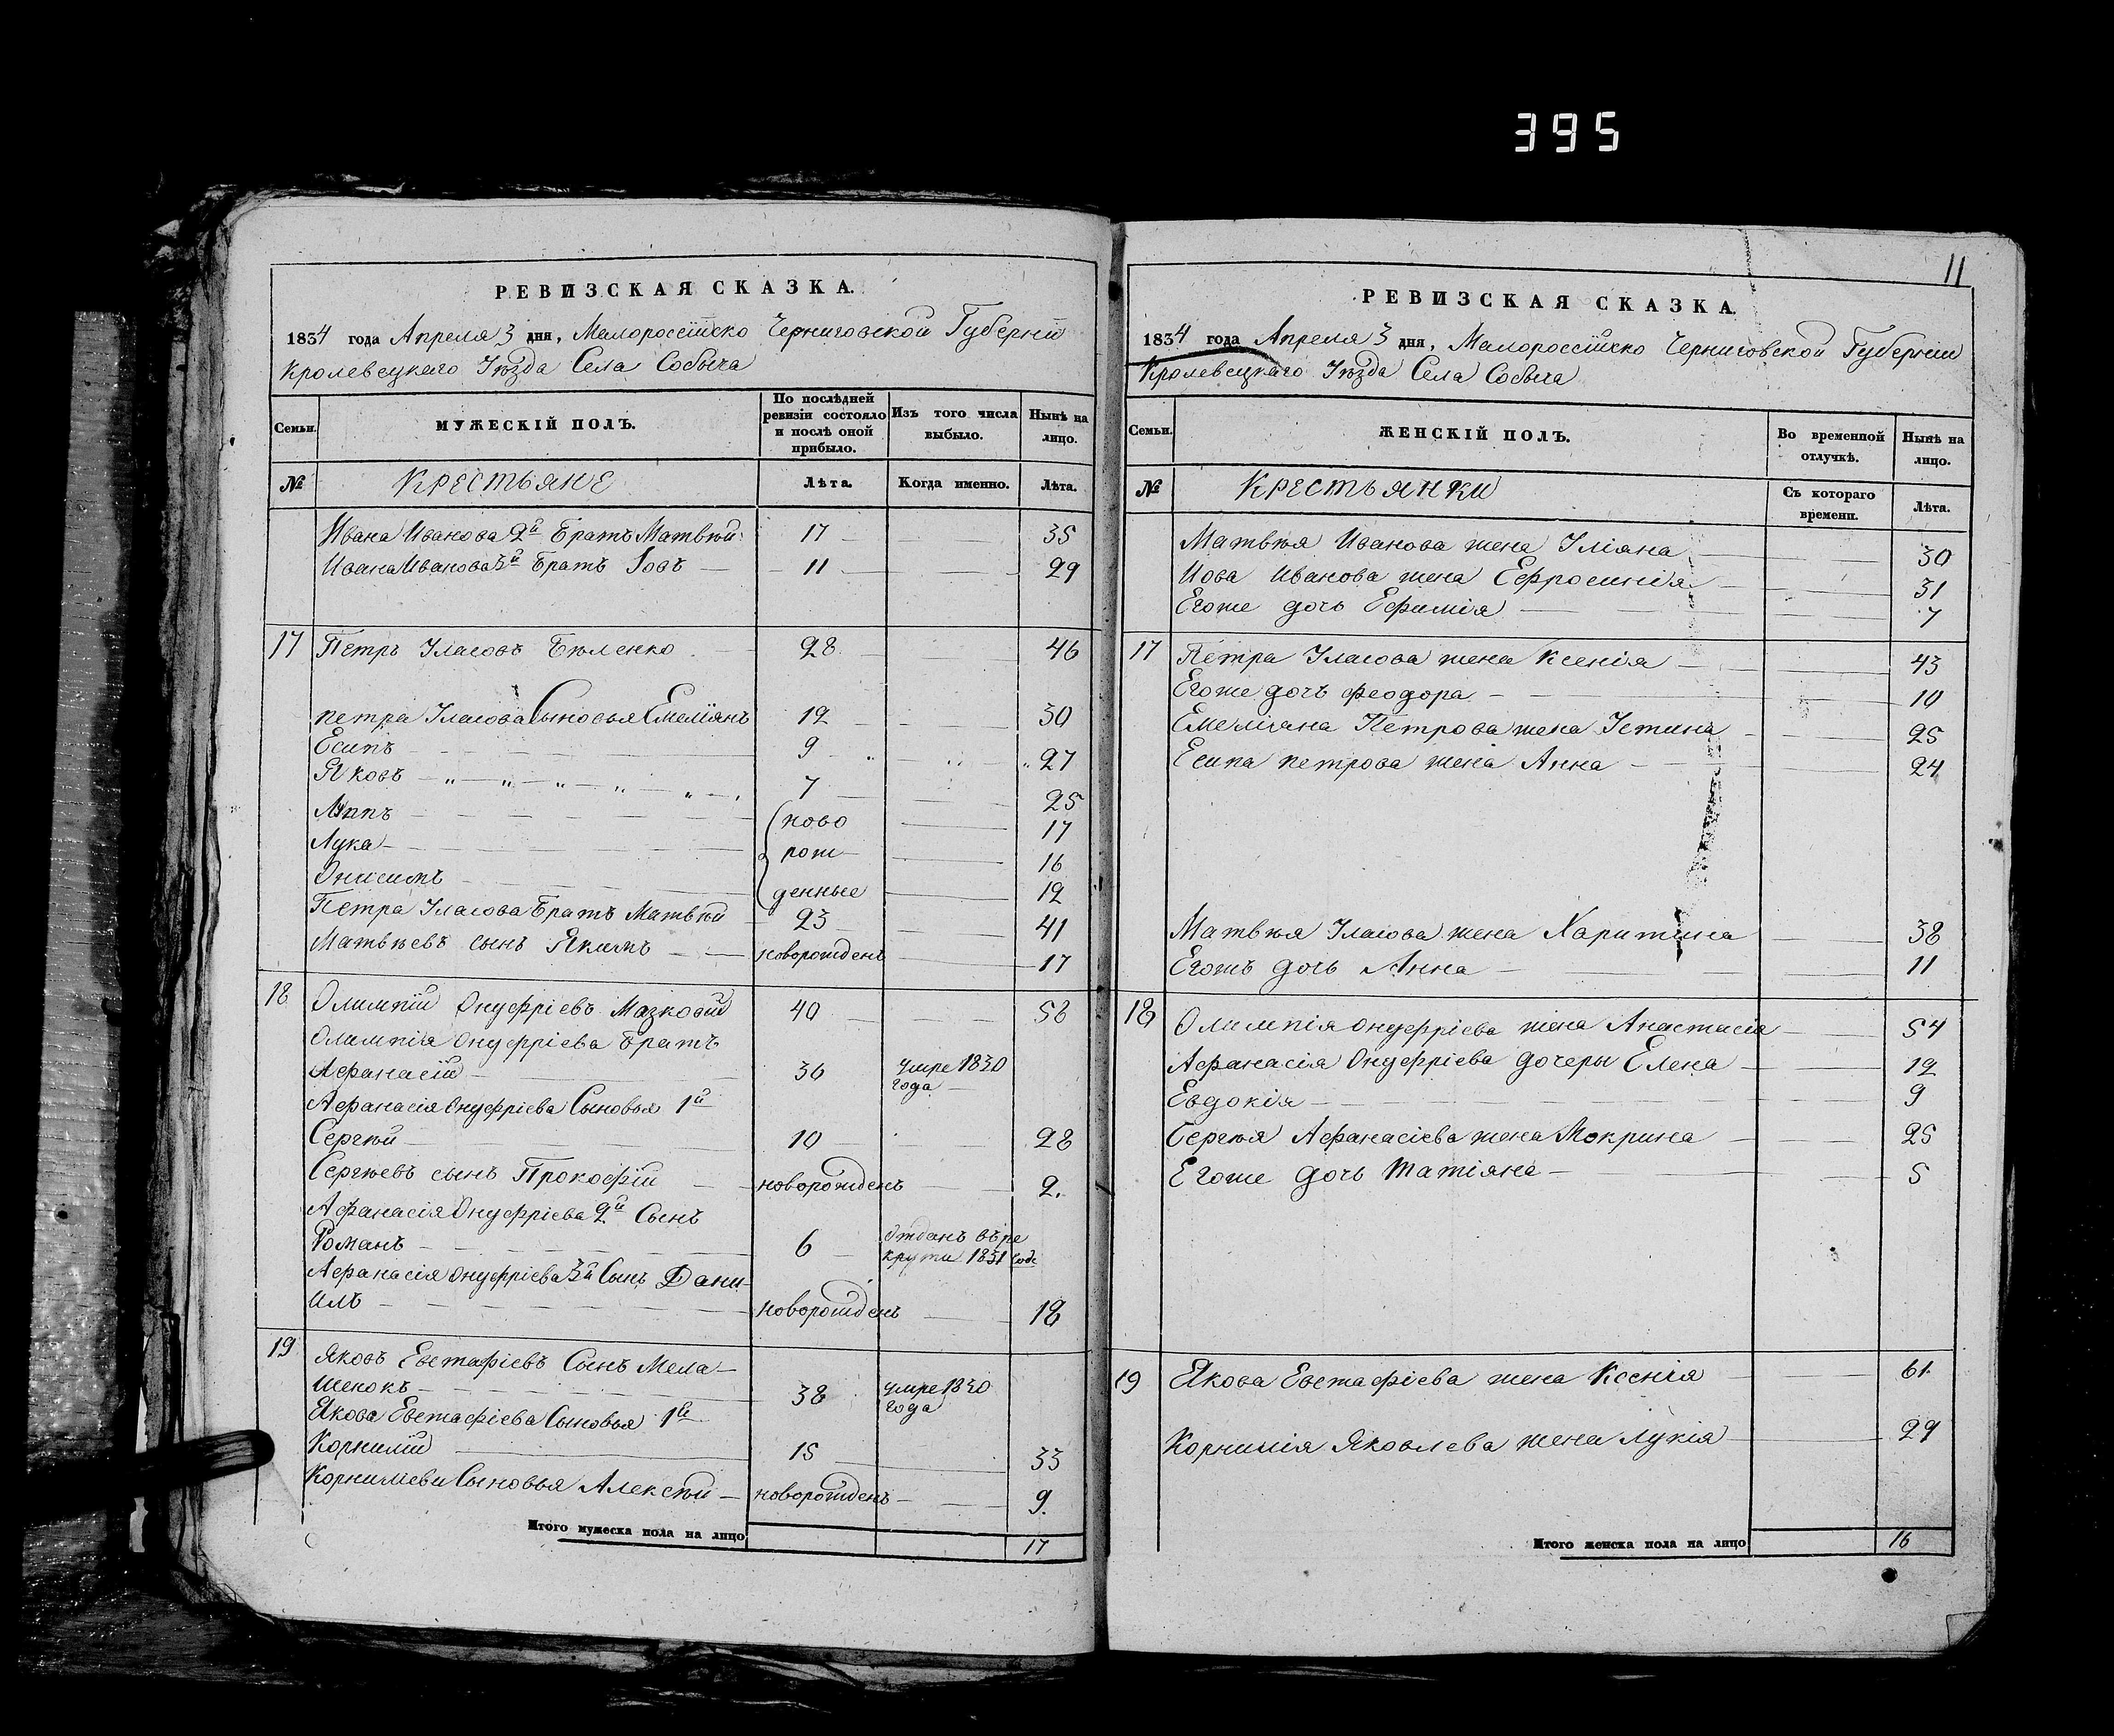 395
РЕВИЗСКАЯ СКАЗКА.
1834 года Апреля 3 дня, Малороссійско Черниговской Губерніи
Кролевецкаго Уѣзда Села Собыча
Семьи. МУЖЕСКІЙ ПОЛЪ. По послѣдней ревизіи состояло и послѣ оной прибыло. Изъ того числа выбыло. Нынѣ на лицо.
№ Крестьяне Лѣта. Когда именно. Лѣта.
Ивана Иванова 2й Братъ Матвѣй 17 35
Ивана Иванова 3й Братъ Іовъ 11 29
17 Петръ Уласовъ Бѣленко 28 46
петра Уласова Сыновья Емеліянъ 12 30
Есипъ 9 27
Яковъ 7 25
Луппъ ново 17
Лука рож 16
Онисимъ денные 12
Петра Уласова Братъ Матвѣй 23 41
Матвѣевъ сынъ Якимъ новорожденъ 17
18 Олимпій Онуфріевъ Мазковій 40 58
Олимпія Онуфріева Братъ
Афанасій 36 умре 1830 года
Афанасія Онуфріева Сыновья 1й
Сергѣй 10 28
Сергѣевъ сынъ Прокофій новорожденъ 2.
Афанасія Онуфріева 2й Сынъ
Романъ 6 отданъ въ ре крути 1831 года
Афанасія Онуфріева 3й Сынъ Дани
илъ новорожденъ 18
19 Яковъ Евстафіевъ Сынъ Мела
шенокъ 38 умре 1830 года
Якова Евстафіева Сыновья 1й
Корнилій 15 33
Корниліеви Сыновья Алексѣй новорожденъ 9.
Итого мужеска пола на лицо 17
11
РЕВИЗСКАЯ СКАЗКА.
1834 года Апреля 3 дня, Малороссійско Черниговской Губерніи
Кролевецкаго Уѣзда Села Собыча
Семьи. ЖЕНСКІЙ ПОЛЪ. Во временной отлучкѣ. Нынѣ на лицо.
№ Крестьянки Съ котораго времени. Лѣта.
Матвѣя Иванова жена Уліяна 30
Иова Иванова жена Ефросинія 31
Егоже дочь Ефимія 7
17 Петра Уласова жена Ксенія 43
Егоже дочъ Феодора 10
Емеліяна Петрова жена Устина 25
Есипа петрова жена Анна 24
Матвѣя Уласова жена Харитина 38
Егожъ дочь Анна 11
18 Олимпія Онуфріева жена Анастасія 54
Афанасія Онуфріева дочеры Елена 12
Евдокія 9
Сергѣя Афанасіева жена Мокрина 25
Егоже дочь Татіяна 5
19 Якова Евстафіева жена Ксенія 61.
Корнилія Яковлева жена Лукія 29
Итого женска пола на лицо 16